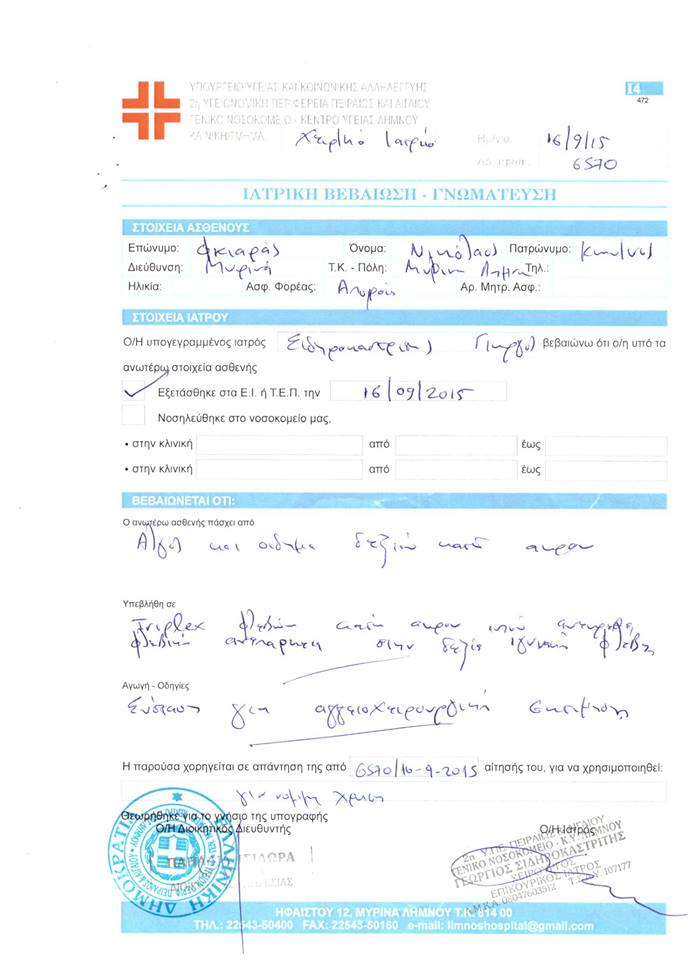 ΥΠΟΥΡΓΕΙΟ ΥΓΕΙΑΣ ΚΑΙ ΚΟΙΝΩΝΙΚΗΣ ΑΛΛΗΛΕΓΓΥΗΣ
2η ΥΓΕΙΟΝΟΜΙΚΗ ΠΕΡΙΦΕΡΕΙΑ ΠΕΙΡΑΙΩΣ ΚΑΙ ΑΙΓΑΙΟΥ
ΓΕΝΙΚΟ ΝΟΣΟΚΟΜΕΙΟ - ΚΕΝΤΡΟ ΥΓΕΙΑΣ ΛΗΜΝΟΥ
ΚΛΙΝΙΚΗ/ΤΜΗΜΑ:
14
472
16/9/15
6570
ΙΑΤΡΙΚΗ ΒΕΒΑΙΩΣΗ - ΓΝΩΜΑΤΕΥΣΗ
ΣΤΟΙΧΕΙΑ ΑΣΘΕΝΟΥΣ
Επώνυμο: Όνομα: Νικόλαος Πατρώνυμο:
Διεύθυνση: Μυρινα Τ.Κ - Πόλη: Μυρινα Λημνου Τηλ.:
Ηλικία: Ασφ. Φορέας: Αρ. Μητρ. Ασφ.:
ΣΤΟΙΧΕΙΑ ΙΑΤΡΟΥ
Ο/Η υπογεγραμμένος ιατρός Σιδηροκαστριτης Γιωργος βεβαιώνω ότι ο/η υπό τα
ανωτέρω στοιχεία ασθενής
Εξετάσθηκε στα Ε.Ι. ή Τ.Ε.Π. την 16/09/2015
Νοσηλεύθηκε στο νοσοκομείο μας,
• στην κλινική από έως
• στην κλινική από έως
ΒΕΒΑΙΩΝΕΤΑΙ ΟΤΙ:
Ο ανωτέρω ασθενής πάσχει από
Αλγος και οιδημα δεξιού κατω ακρου
Υπεβλήθη σε
Triplex φλεβών κατω ακρου
φλεβική ανεπαρκεια στην δεξια ιγνυακή φλεβα
Αγωγή - Οδηγίες
για αγγειοχειρουργική εκτιμηση
Η παρούσα χορηγείται σε απάντηση της από 6570/16-9-2015 αίτησής του, για να χρησιμοποιηθεί:
για νομιμη χρηση
Θεωρήθηκε για το γνήσιο της υπογραφής
Ο/Η Διοικητικός Διευθυντής
Ο/Η Ιατρός
ΕΛΛΗΝΙΚΗ ΔΗΜΟΚΡΑΤΙΑ
2η Υ.ΠΕ. ΠΕΙΡΑΙΩΣ ΚΑΙ ΑΙΓΑΙΟΥ
ΓΕΝΙΚΟ ΝΟΣΟΚΟΜΕΙΟ - Κ.Υ. ΛΗΜΝΟΥ
ΓΕΩΡΓΙΟΣ ΣΙΔΗΡΟΚΑΣΤΡΙΤΗΣ
ΧΕΙΡΟΥΡΓΟΣ
ΕΠΙΚΟΥΡΙΚΟΣ ΙΑΤΡΟΣ
ΗΦΑΙΣΤΟΥ 12, ΜΥΡΙΝΑ ΛΗΜΝΟΥ Τ.Κ. 814 00
ΤΗΛ.: 22543-50400 FAX: 22543-50160 e-mail: limnoshospital@gmail.com